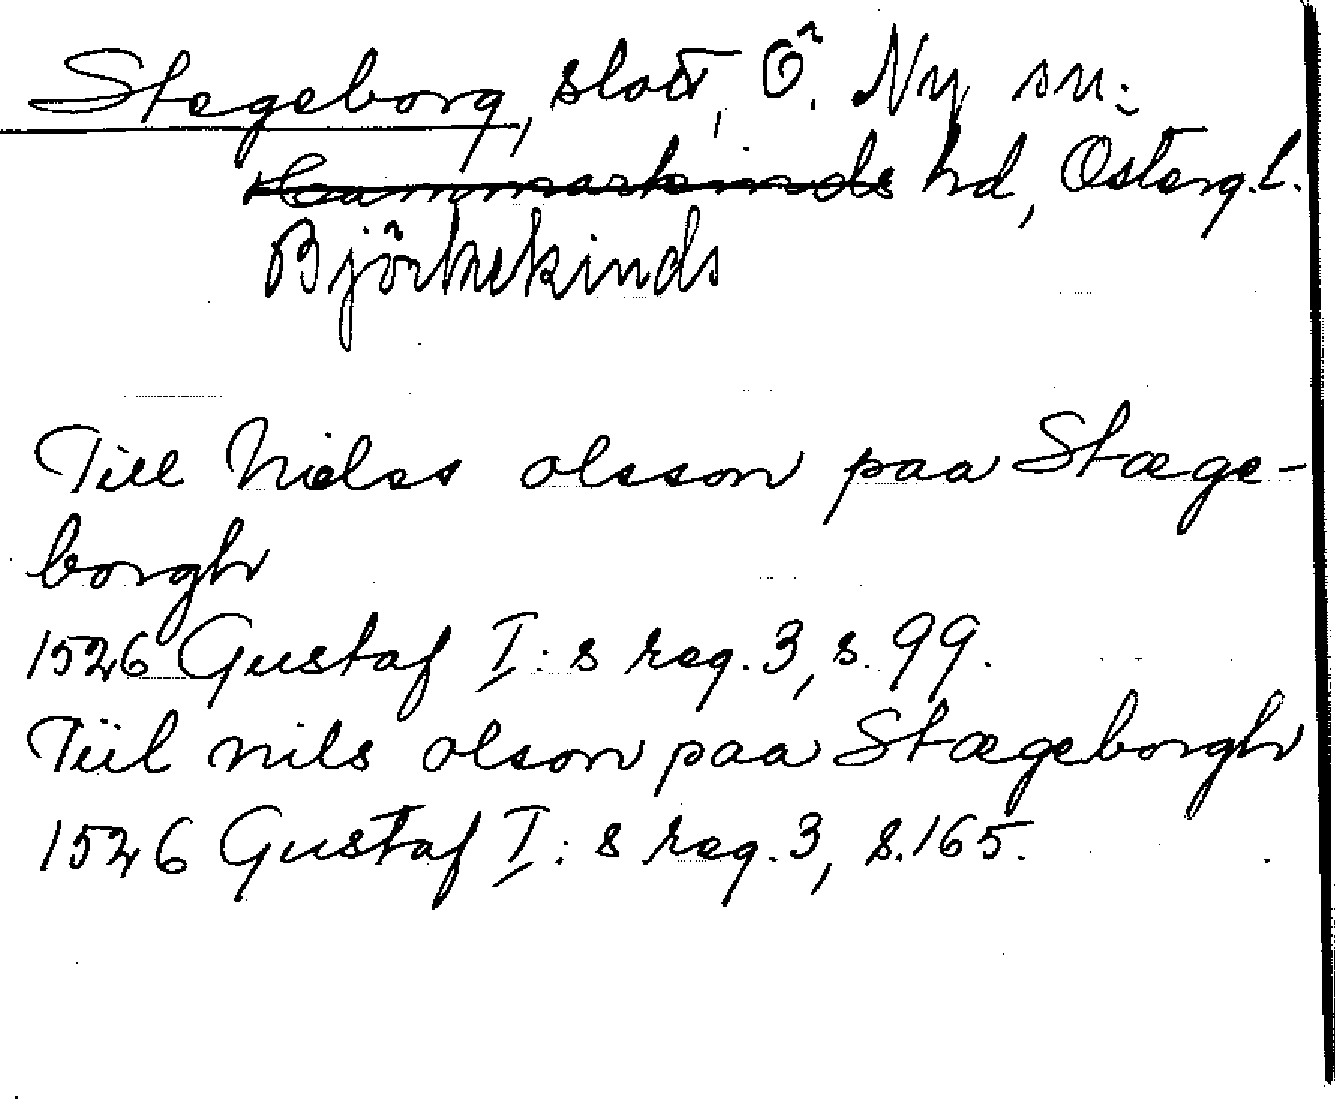 Stegeborg, slott, Ö. Ny sn.
Hammarkinds hd, Österg.l.
Björkekinds
Till Nielss olsson paa Stæge-
borgh
1526 Gustaf I:s reg. 3, s. 99.
Tiil nils olson paa Stægeborgh
1526 Gustaf I:s reg. 3, s. 165.